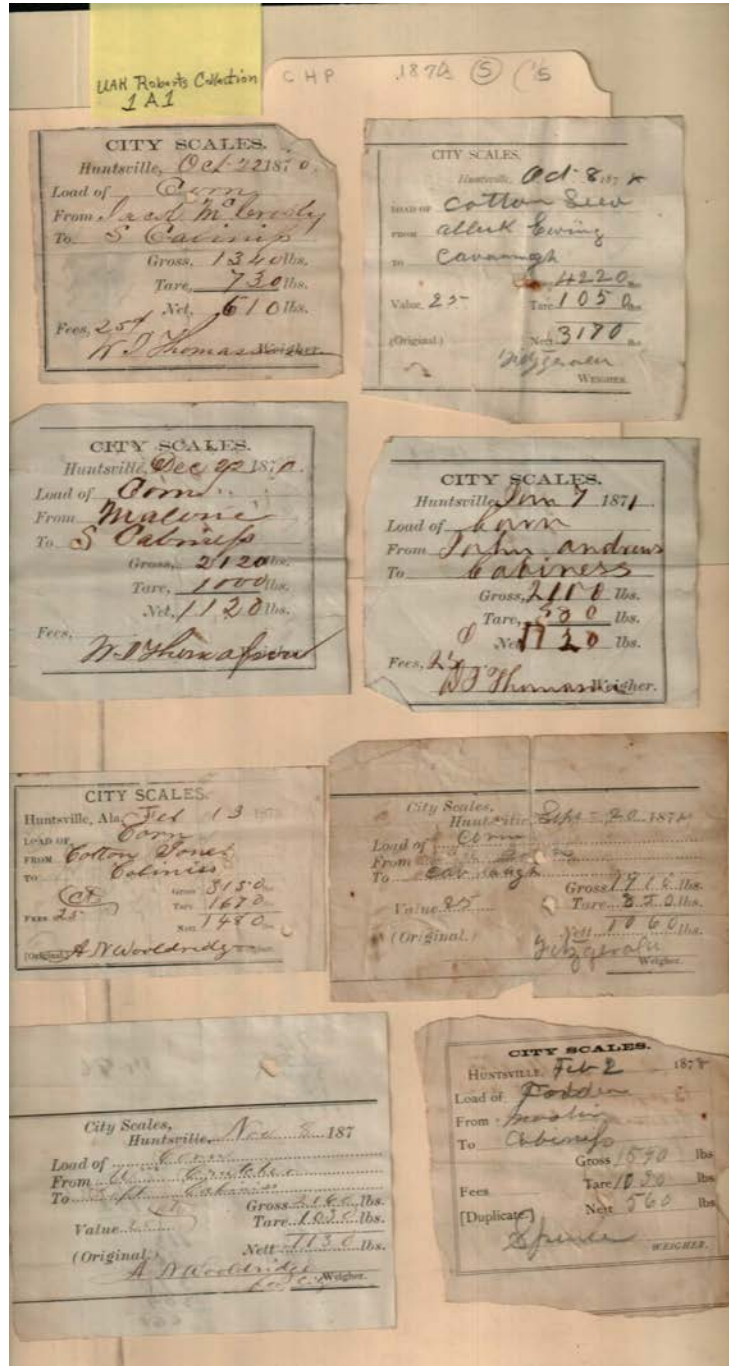 UAH Roberts Collection
1 A 1
CHP 187 5
CITY SCALES.
Huntsville, Oct 22 1870.
Load of Corn
From McCrody
To S Cabiniss
Gross, 1340 lbs.
Tare, 730 lbs.
Net, 610 lbs.
Fees, 25
Weigher.
CITY SCALES,
Huntsville, Oct 8 187
LOAD OF Cotton Seed
FROM Ewing
TO Cavanaugh
4220
Value, 25 Tare 1050 lbs.
(Original.) Nett 3170 lbs
Fitzgerald
WEIGHER.
CITY SCALES.
Huntsville, Dec 187
Load of Corn
From Malone
To S Cabiniss
Gross, 2120 lbs.
Tare, 1000 lbs.
Net, 1120 lbs.
Fees,
CITY SCALES.
Huntsville, 7 1871.
Load of Corn
From John andrews
To Cabiness
Gross, lbs.
Tare, lbs.
Net lbs.
Fees,
Weigher.
CITY SCALES.
Huntsville, Ala. Feb 13
LOAD OF Corn
FROM Cotton Jones
TO Cabiniss
Gross 3150 lbs
FEES 25 Tare 1670 lbs
Nett 1480 lbs
(Original.) A N Wooldridge Weigher.
City Scales,
Huntsville, Sept 20 187
Load of Corn
From
To Cavanaugh
Gross 1910 lbs.
Value Tare 850 lbs.
(Original.) Nett 1060 lbs.
Fitzgerald
Weigher.
City Scales,
Huntsville, Nov 8 187
Load of Corn
From
To Cabiniss
Gross lbs.
Value Tare 1030 lbs.
(Original.) Nett 1130 lbs.
A N Wooldridge
Weigher.
CITY SCALES.
HUNTSVILLE, Feb 2 187
Load of Fodder
From
To Cabiniss
Gross 1590 lbs
Fees Tare 1030 lbs
[Duplicate.] Nett 560 lbs
Spence
WEIGHER.